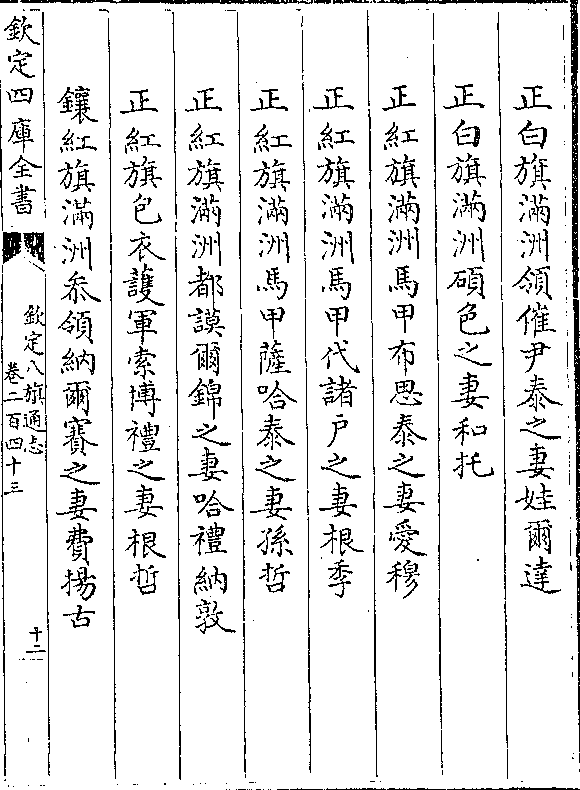 正白旗滿洲領催尹泰之妻娃爾達
正白旗滿洲碩色之妻和托
正紅旗滿洲馬甲布思泰之妻愛穆
正紅旗滿洲馬甲代諸户之妻根季
正紅旗滿洲馬甲薩哈泰之妻孫哲
正紅旗滿洲都謨爾錦之妻哈禮納敦
正紅旗包衣護軍索博禮之妻根哲
鑲紅旗滿洲叅領納爾賽之妻費揚古
欽定四庫全書
欽定八旗通志
卷二百四十三
十二